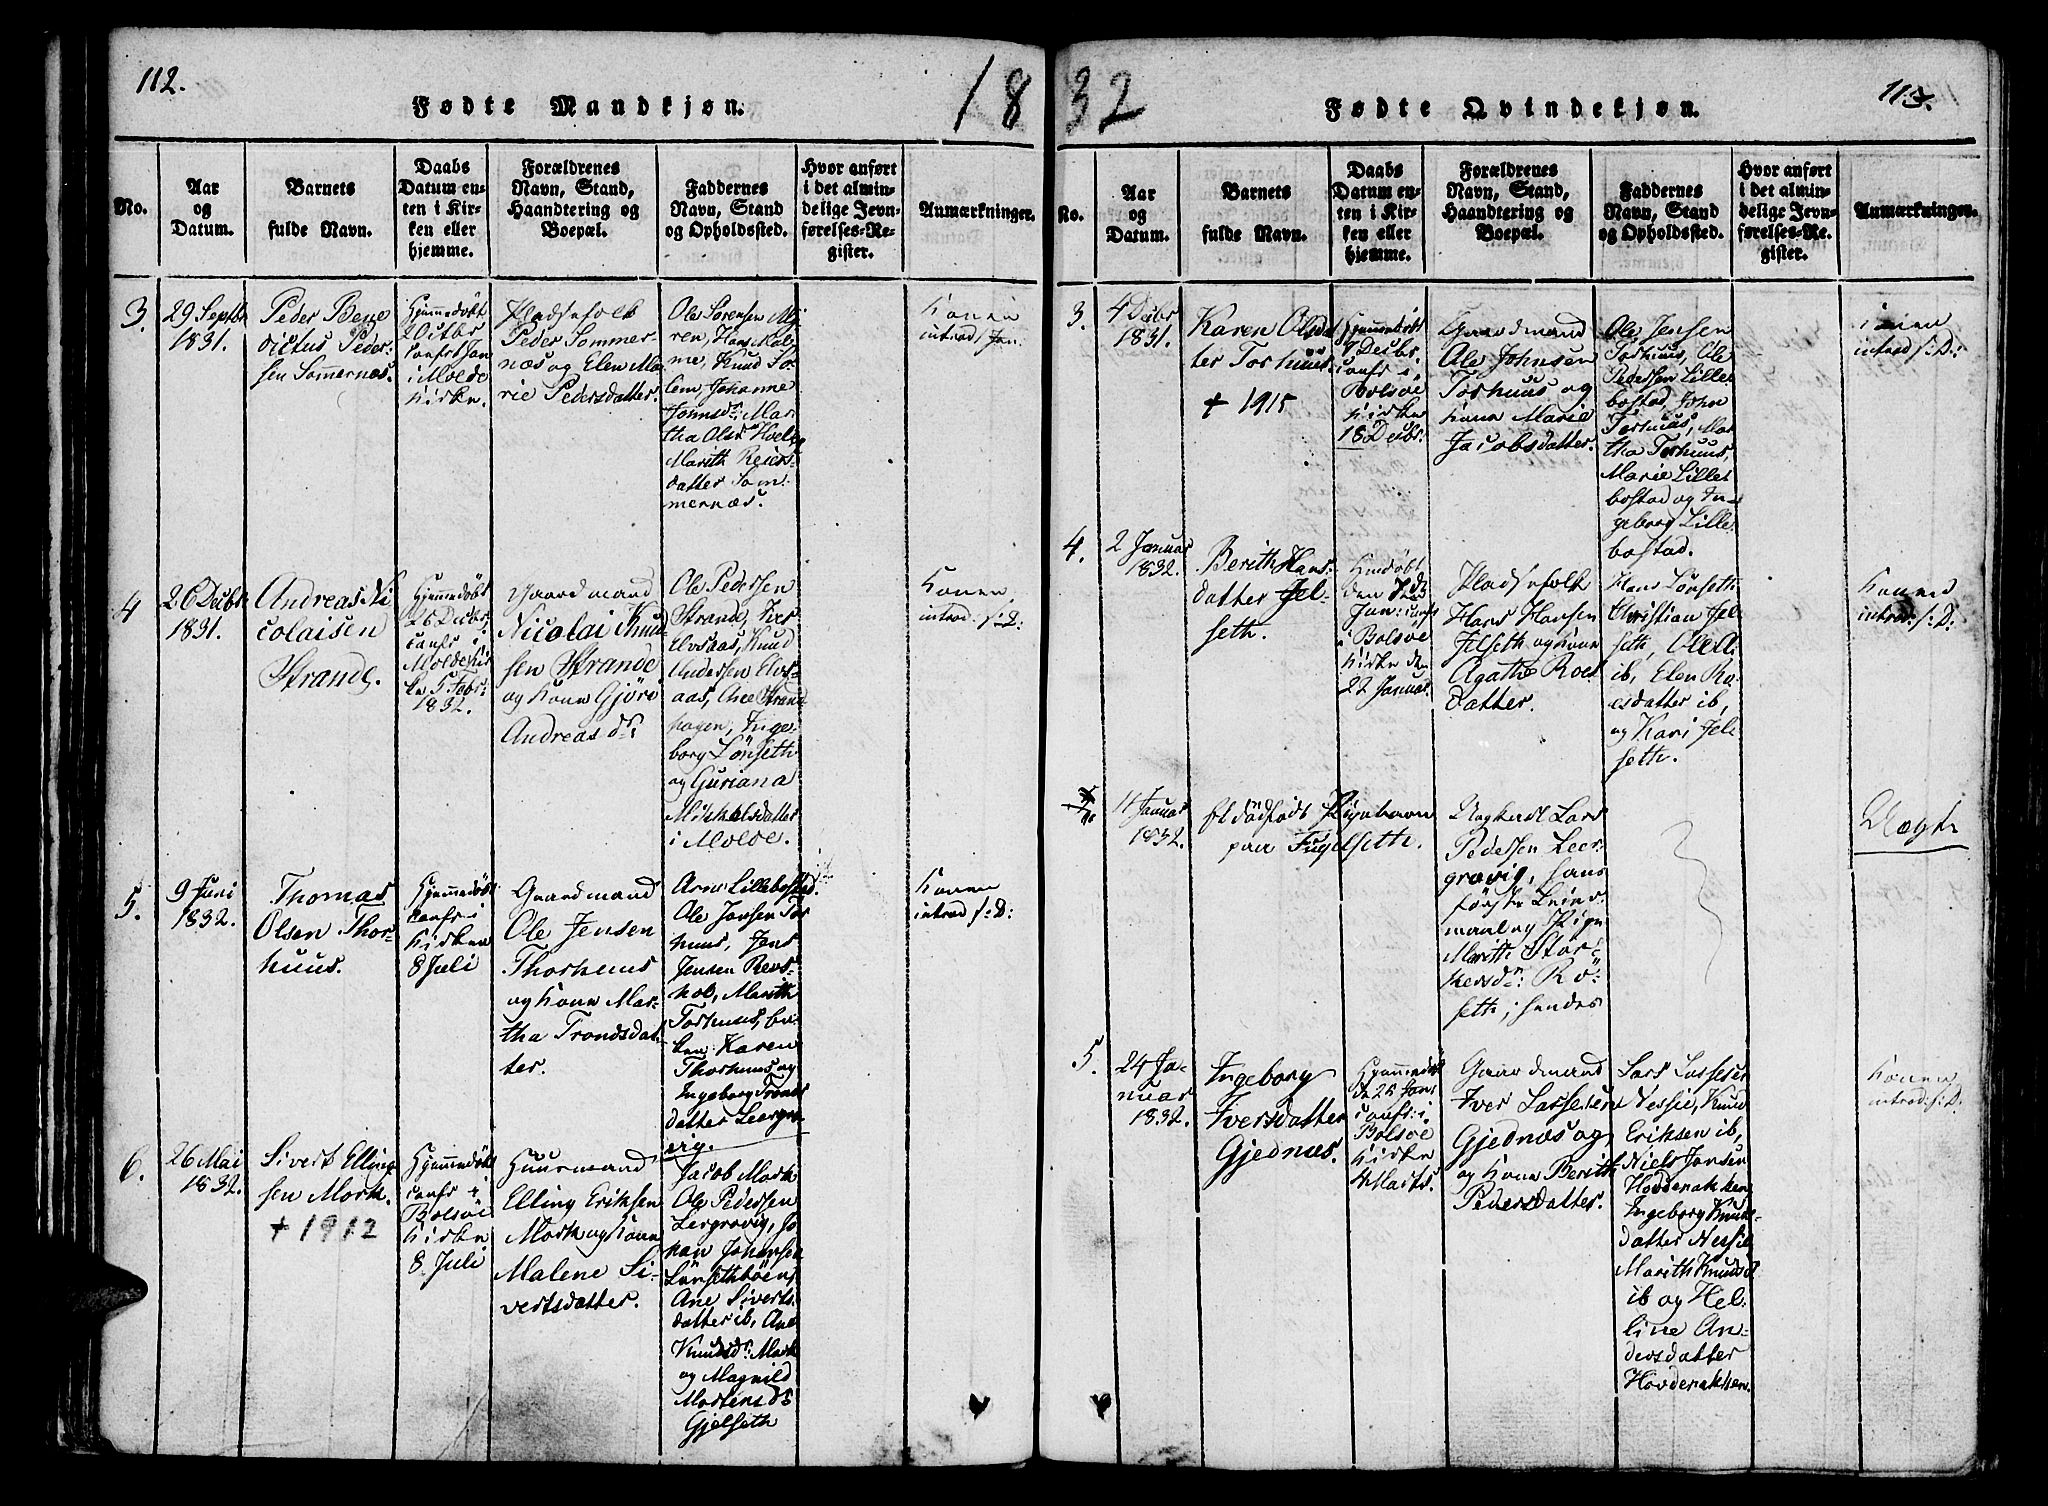 112.
1832
113.
Fødte Mandkjøn.
No.
Aar
og
Datum.
Barnets
fulde Navn.
Daabs
Datum en-
ten i Kir-
ken eller
hjemme.
Forældrenes
Navn, Stand,
Haandtering og
Boepæl.
Faddernes
Navn, Stand
og Opholdssted.
Hvor anført
i det almin-
delige Jevn-
førelses-Re-
gister.
Anmærkninger.
3.
29 Septbr
1831.
Peder Bene
dictus Peder-
sen Sommernæs.
Hjemmedøbt
2 Octbr
conf. Jan
i Molde
Kirke.
Pladsefolk
Peder Sommer
næs og Elen Ma
rie Pedersdatter.
Ole Sørensen
ren, Hans Kol
me, Knud So
lem, Johanne
Johnsdr: Mar
tha Olsdr Hoel
Marith Reiers-
datter Som
mernæs.
Konen
introd. Jan.
4
26 Decbr
1831.
Andreas Ni
colaisen
Strande.
Hjemmedøbt
26 Decbr
conf. i
Molde Kir
ke 5 Febr:
1832.
Gaardmand
Nicolai Knud
sen Strande
og Kone Gjøre
Andreasdr:
Ole Pedersen
Strande, Iver
Elvsaas, Knud
Andersen Elvs-
aas, Ane Strand
hagen, Inge-
borg Lönseth
og Guriana
Mikkelsdatter
i Molde.
Konen
introd. s: D:
5.
9 Juni
1832.
Thomas
Olsen Thor-
huus.
Hjemmedøbt
conf. i
Kirken
8 Juli
Gaardmand
Ole Jensen
Thorhuus
og Kone Mar-
tha Trondsdat
ter.
Arne Lillebostad.
Ole Jonsen Tor
huus, Jens
Jensen Revs-
hol, Marith
Torhuus,
Karen
Thorhuus og
Ingeborg Tronds
datter Leergro-
vig.
Konen
introd s: D:
6.
26 Mai
1832.
Sivert Elling
sen Mork.
+ 1912
Hjemmedøbt
conf. i
Bolsöe
Kirke
8 Juli
Huusmand
Elling Eriksen
Mork og Kone
Malene Si-
vertsdatter.
Jacob Mork
Ole Pedersen
Lergrovig, Jo
han Johansen
Lönsethbøen,
Ane Siverts-
datter ib, Ane
Knudsdr: Mork
og Magnild
Mortensdr
Gjelseth
Fødte Qvindekjøn.
No.
Aar
og
Datum.
Barnets
fulde Navn.
Daabs
Datum en-
ten i Kir-
ken eller
hjemme.
Forældrenes
Navn, Stand,
Haandtering og
Boepæl.
Faddernes
Navn, Stand
og Opholdssted.
Hvor anført
i det almin-
delige Jevn-
førelses-Re-
gister.
Anmærkninger.
3.
4 Decbr
1831.
Karen Olsdat
ter Torhuus.
+ 1915
Hjemmedøbt
9 Decbr.
conf. i
Bolsöe
Kirke
18 Decbr:
Gaardmand
Ole Johnsen
Torhuus og
Kone Marie
Jacobsdatter.
Ole Jensen
Torhuus, Ole
Pedersen Lille
bostad, John
Torhuus, Mar
tha Torhuus,
Marie Lille
bostad og In-
geborg Lille
bostad.
Konen
introd s: D:
4.
2 Januar
1832.
Berith Hans-
datter Jel-
seth.
Hmdöbt
den 7de
Jan: conf.
i Bolsöe
Kirke den
22 Januar.
Pladsefolk
Hans Hansen
Jelseth og Kone
Agathe Roes
datter.
Hans Lönseth
Christian Jel
seth, Ole
ib, Elen Ro-
esdatter ib,
og Kari Jel
seth.
Konen
introd. s: D:
11 Januar
1832.
et dödfödt Pigebarn
paa Fugelseth.
Ungkarl Lars
Pedersen Leer-
grovig, hans
første Leier-
maal og Pige
Marith Stor-
kersdr: Rö-
seth; hendes
Uægte
5.
24 Ja-
nuar
1832.
Ingeborg
Iversdatter
Gjednæs.
Hjemmedöbt
d 26 Jan:
conf: i
Bolsöe
Kirke
4 Marts.
Gaardmand
Iver Lassesen
Gjednæs og
og Kone Berith
Pedersdatter.
Lars Lassesen
Nessie, Knud
Eriksen ib,
Niels Jensen
Hovdenakken
Ingeborg Knuds-
datter Nessie
Marith Knudsd
ib og Hel-
line An-
dersdatter
Hovdenakken.
Konen
introd: s: D: